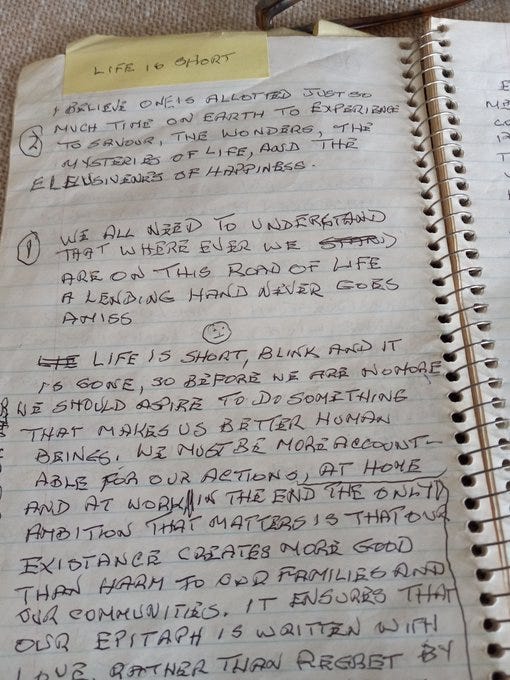 LIFE IS SHORT
I BELIEVE ONE IS ALLOTTED JUST SO
② MUCH TIME ON EARTH TO EXPERIENCE
TO SAVOUR, THE WONDERS, THE
MYSTERIES OF LIFE, AND THE
ELEUSIVENES OF HAPPINESS.
① WE ALL NEED TO UNDERSTAND
THAT WHERE EVER WE
ARE ON THIS ROAD OF LIFE
A LENDING HAND NEVER GOES
AMISS
LIFE IS SHORT, BLINK AND IT
IS GONE, SO BEFORE WE ARE NOMORE
WE SHOULD ASPIRE TO DO SOMETHING
THAT MAKES US BETTER HUMAN
BEINGS. WE MUST BE MORE ACCOUNT-
ABLE FOR OUR ACTIONS, AT HOME
AND AT WORK, IN THE END THE ONLY
AMBITION THAT MATTERS IS THAT OUR
EXISTANCE CREATES MORE GOOD
THAN HARM TO OUR FAMILIES AND
OUR COMMUNITIES. IT ENSURES THAT
OUR EPITAPH IS WRITTEN WITH
LOVE, RATHER THAN REGRET BY